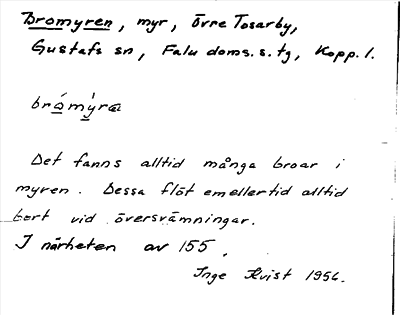 Bromyren, myr, Övre Tosarby,
Gustafs sn, Falu doms.s.tg, Kopp. l.
bròmýra
Det fanns alltid många broar i
myren. Dessa flöt emellertid alltid
bort vid översvämningar.
I närheten av 155.
Inge Kvist 1956.